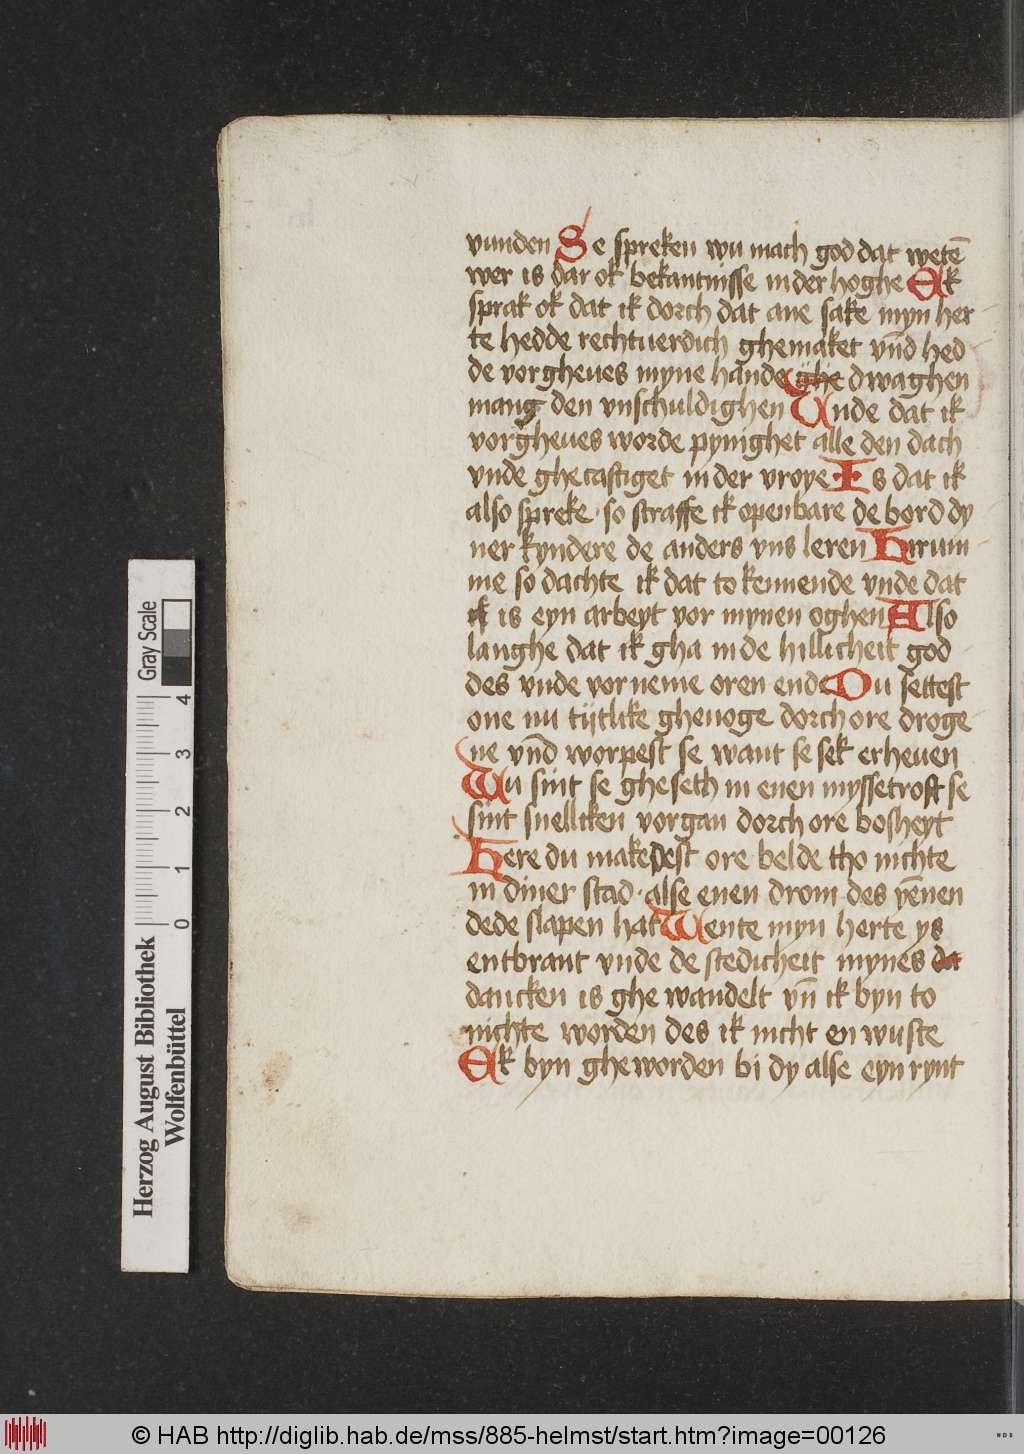 vunden Se spreken wu mach god dat wetē
wer is dar ok bekantnisse in der hoghe Ek
sprak ok dat ik dorch dat ane sake myn her
te hedde rechtuerdich ghemaket vn̄d hed
de vorgheues myne hande ghe dwaghen
mang den vnschuldighen Vnde dat ik
vorgheues worde pynighet alle den dach
vnde ghecastiget in der vroye Is dat ik
also spreke · so straffe ik openbare de bord dy
ner kyndere de anders vns leren Hirum
me so dachte ik dat to kennende vnde dat
ik is eyn arbeyt vor mynen oghen Also
langhe dat ik gha in de hillicheit god
des vnde vorneme oren ende Du settest
one nu tijtlike gheuoge dorch ore droge
ne vn̄d worpest se want se sek erheuen
Wu sint se gheseth in enen myssetrost se
sint snelliken vorgan dorch ore bosheyt
Here du makedest ore belde tho nichte
in diner stad · alse enen drom des yēnen
dede slapen hat Wente myn herte ys
entbrant vnde de stedicheit mynes da
dancken is ghe wandelt vn̄ ik byn to
nichte worden des ik nicht en wuste
Ek byn gheworden bi dy alse eyn rynt
Herzog August Bibliothek
Wolfenbüttel
0 1 2 3 4
Gray Scale
© HAB http://diglib.hab.de/mss/885-helmst/start.htm?image=00126
WDB